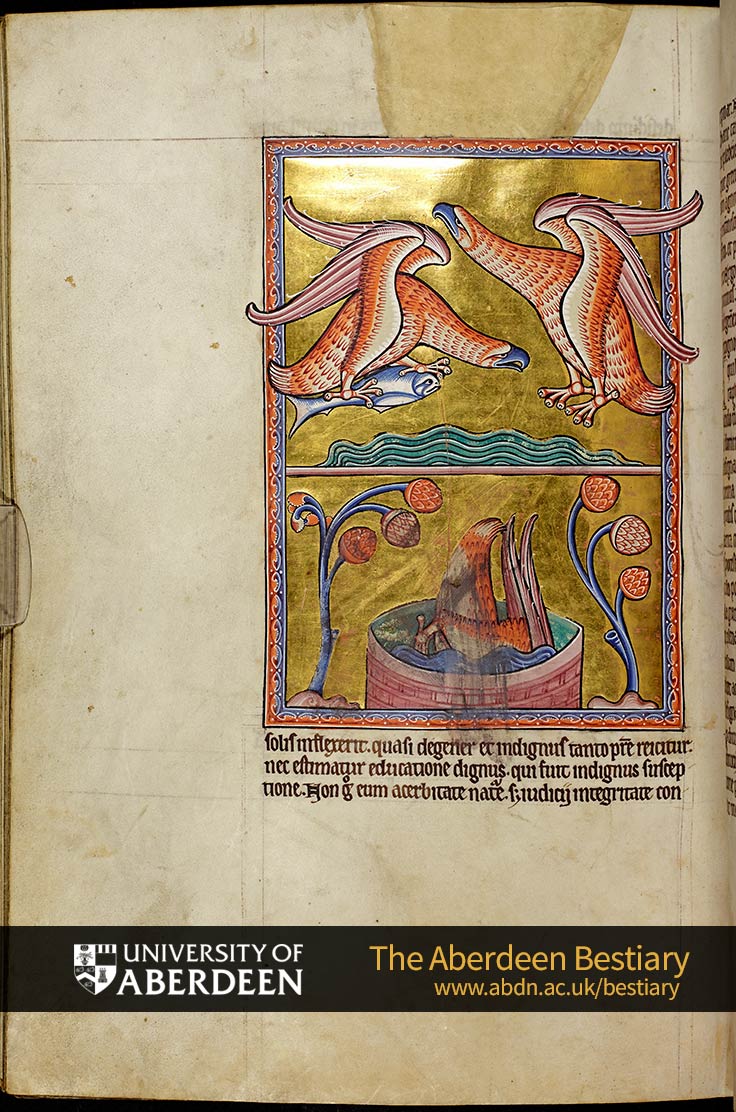 solis inflexerit. quasi degener et indignus tanto pr̄e reicitur.
nec estimatur educatione dignus. qui fuit indignus suscep
tione. Non g̊ eum acerbitate nat̄e. s; iudicij integritate con
UNIVERSITY OF
ABERDEEN
The Aberdeen Bestiary
www.abdn.ac.uk/bestiary